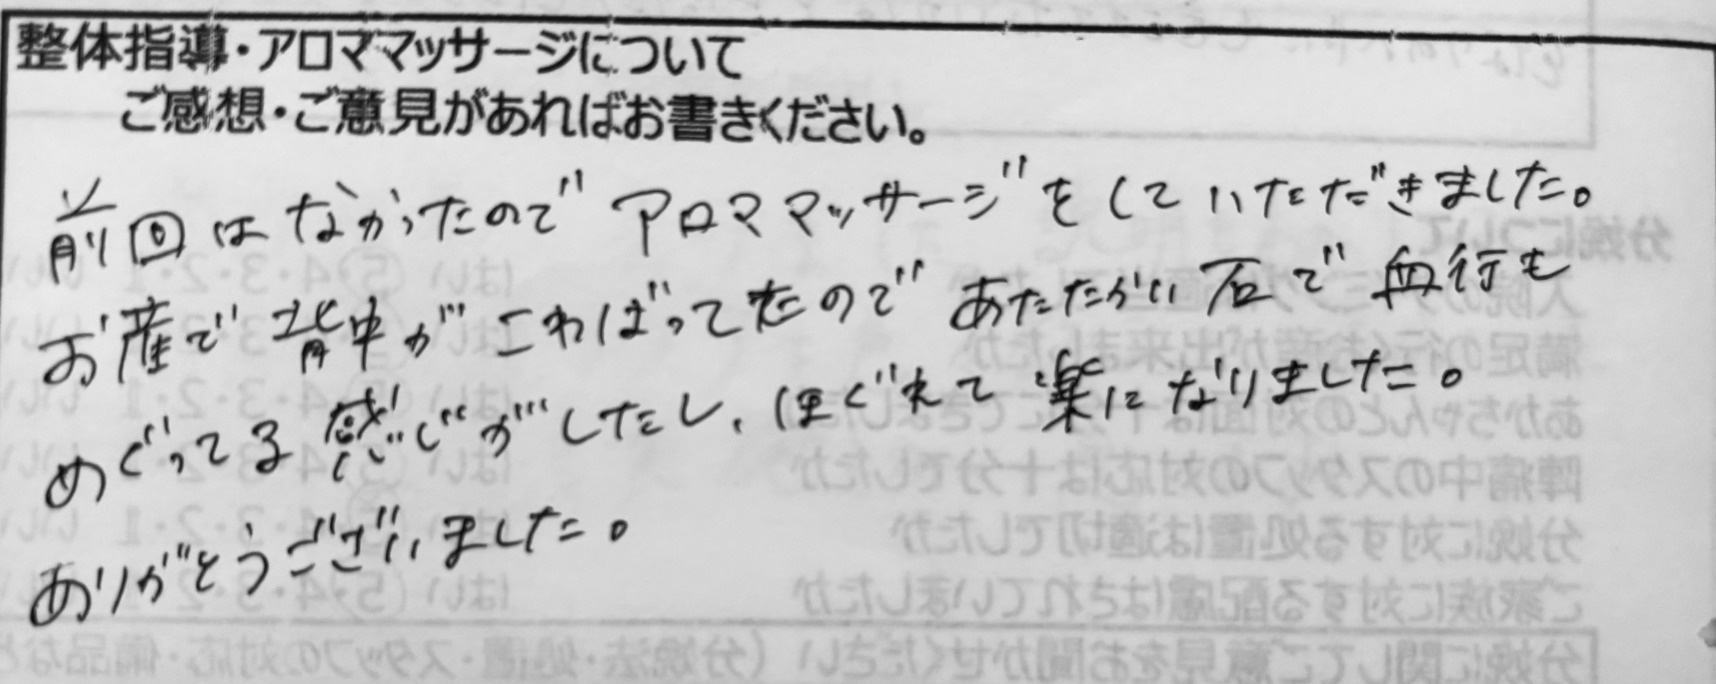 整体指導・アロママッサージについて
ご感想・ご意見があればお書きください。
前回はなかったのでアロママッサージをしていただきました。
お産で背中がこわばってたのであたたかい石で血行も
めぐってる感じがしたし、ほぐれて楽になりました。
ありがとうございました。